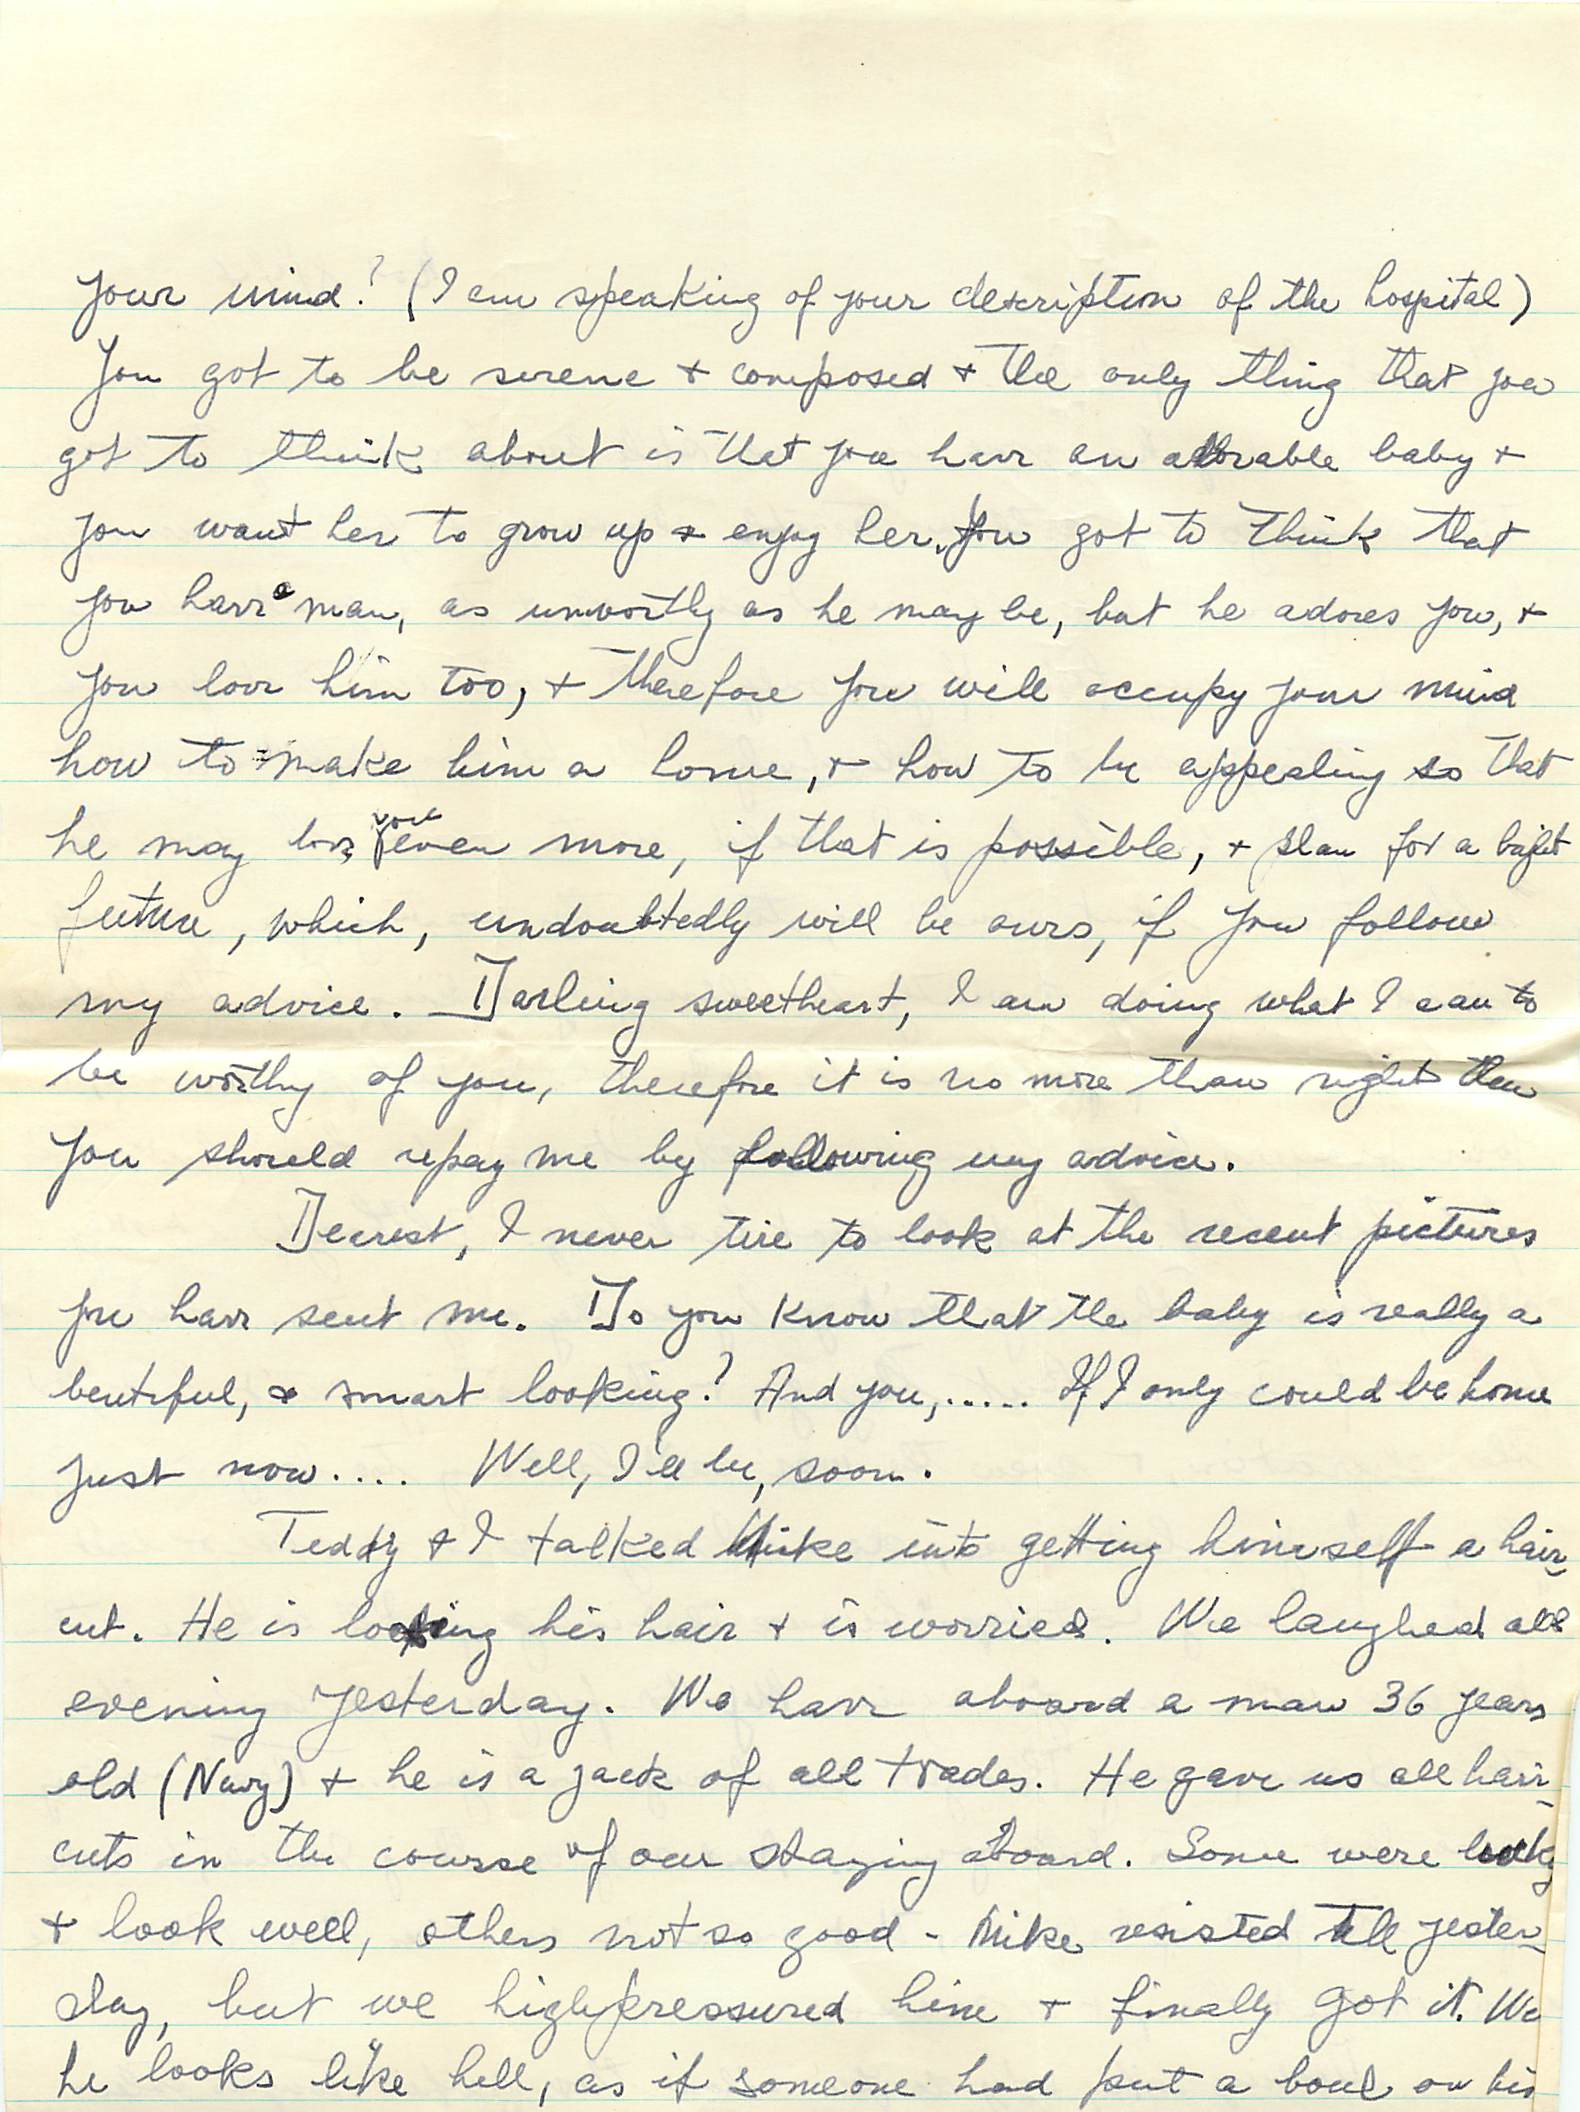 your mind? (I am speaking of your description of the hospital)
You got to be serene + composed + the only thing that you
got to think about is that you have an adorable baby +
you want her to grow up + enjoy her. You got to think that
you have a man, as unworthy as he may be, but he adores you, +
you love him too, + therefore you will occupy your mind
how to make him a home, + how to be appealing so that
he may love you even more, if that is possible, + plan for a bright
future, which, undoubtedly will be ours, if you follow
my advice. Darling sweetheart, I am doing what I can to
be worthy of you, therefore it is no more than right then
you should repay me by following my advice.
Dearest, I never tire to look at the recent pictures
you have sent me. Do you know that the baby is really a
beutiful, + smart looking? And you,..... If I only could be home
just now.... Well, I'll be, soon.
Teddy + I talked Mike into getting himself a hair-
cut. He is loosing his hair + is worried. We laughed all
evening yesterday. We have aboard a man 36 years
old (Navy) + he is a jack of all trades. He gave us all hair-
cuts in the course of our staying aboard. Some were lucky
+ look well, others not so good - Mike resisted till yester-
day, but we highpressured him + finally got it. We
he looks like hell, as if someone had put a bowl on his